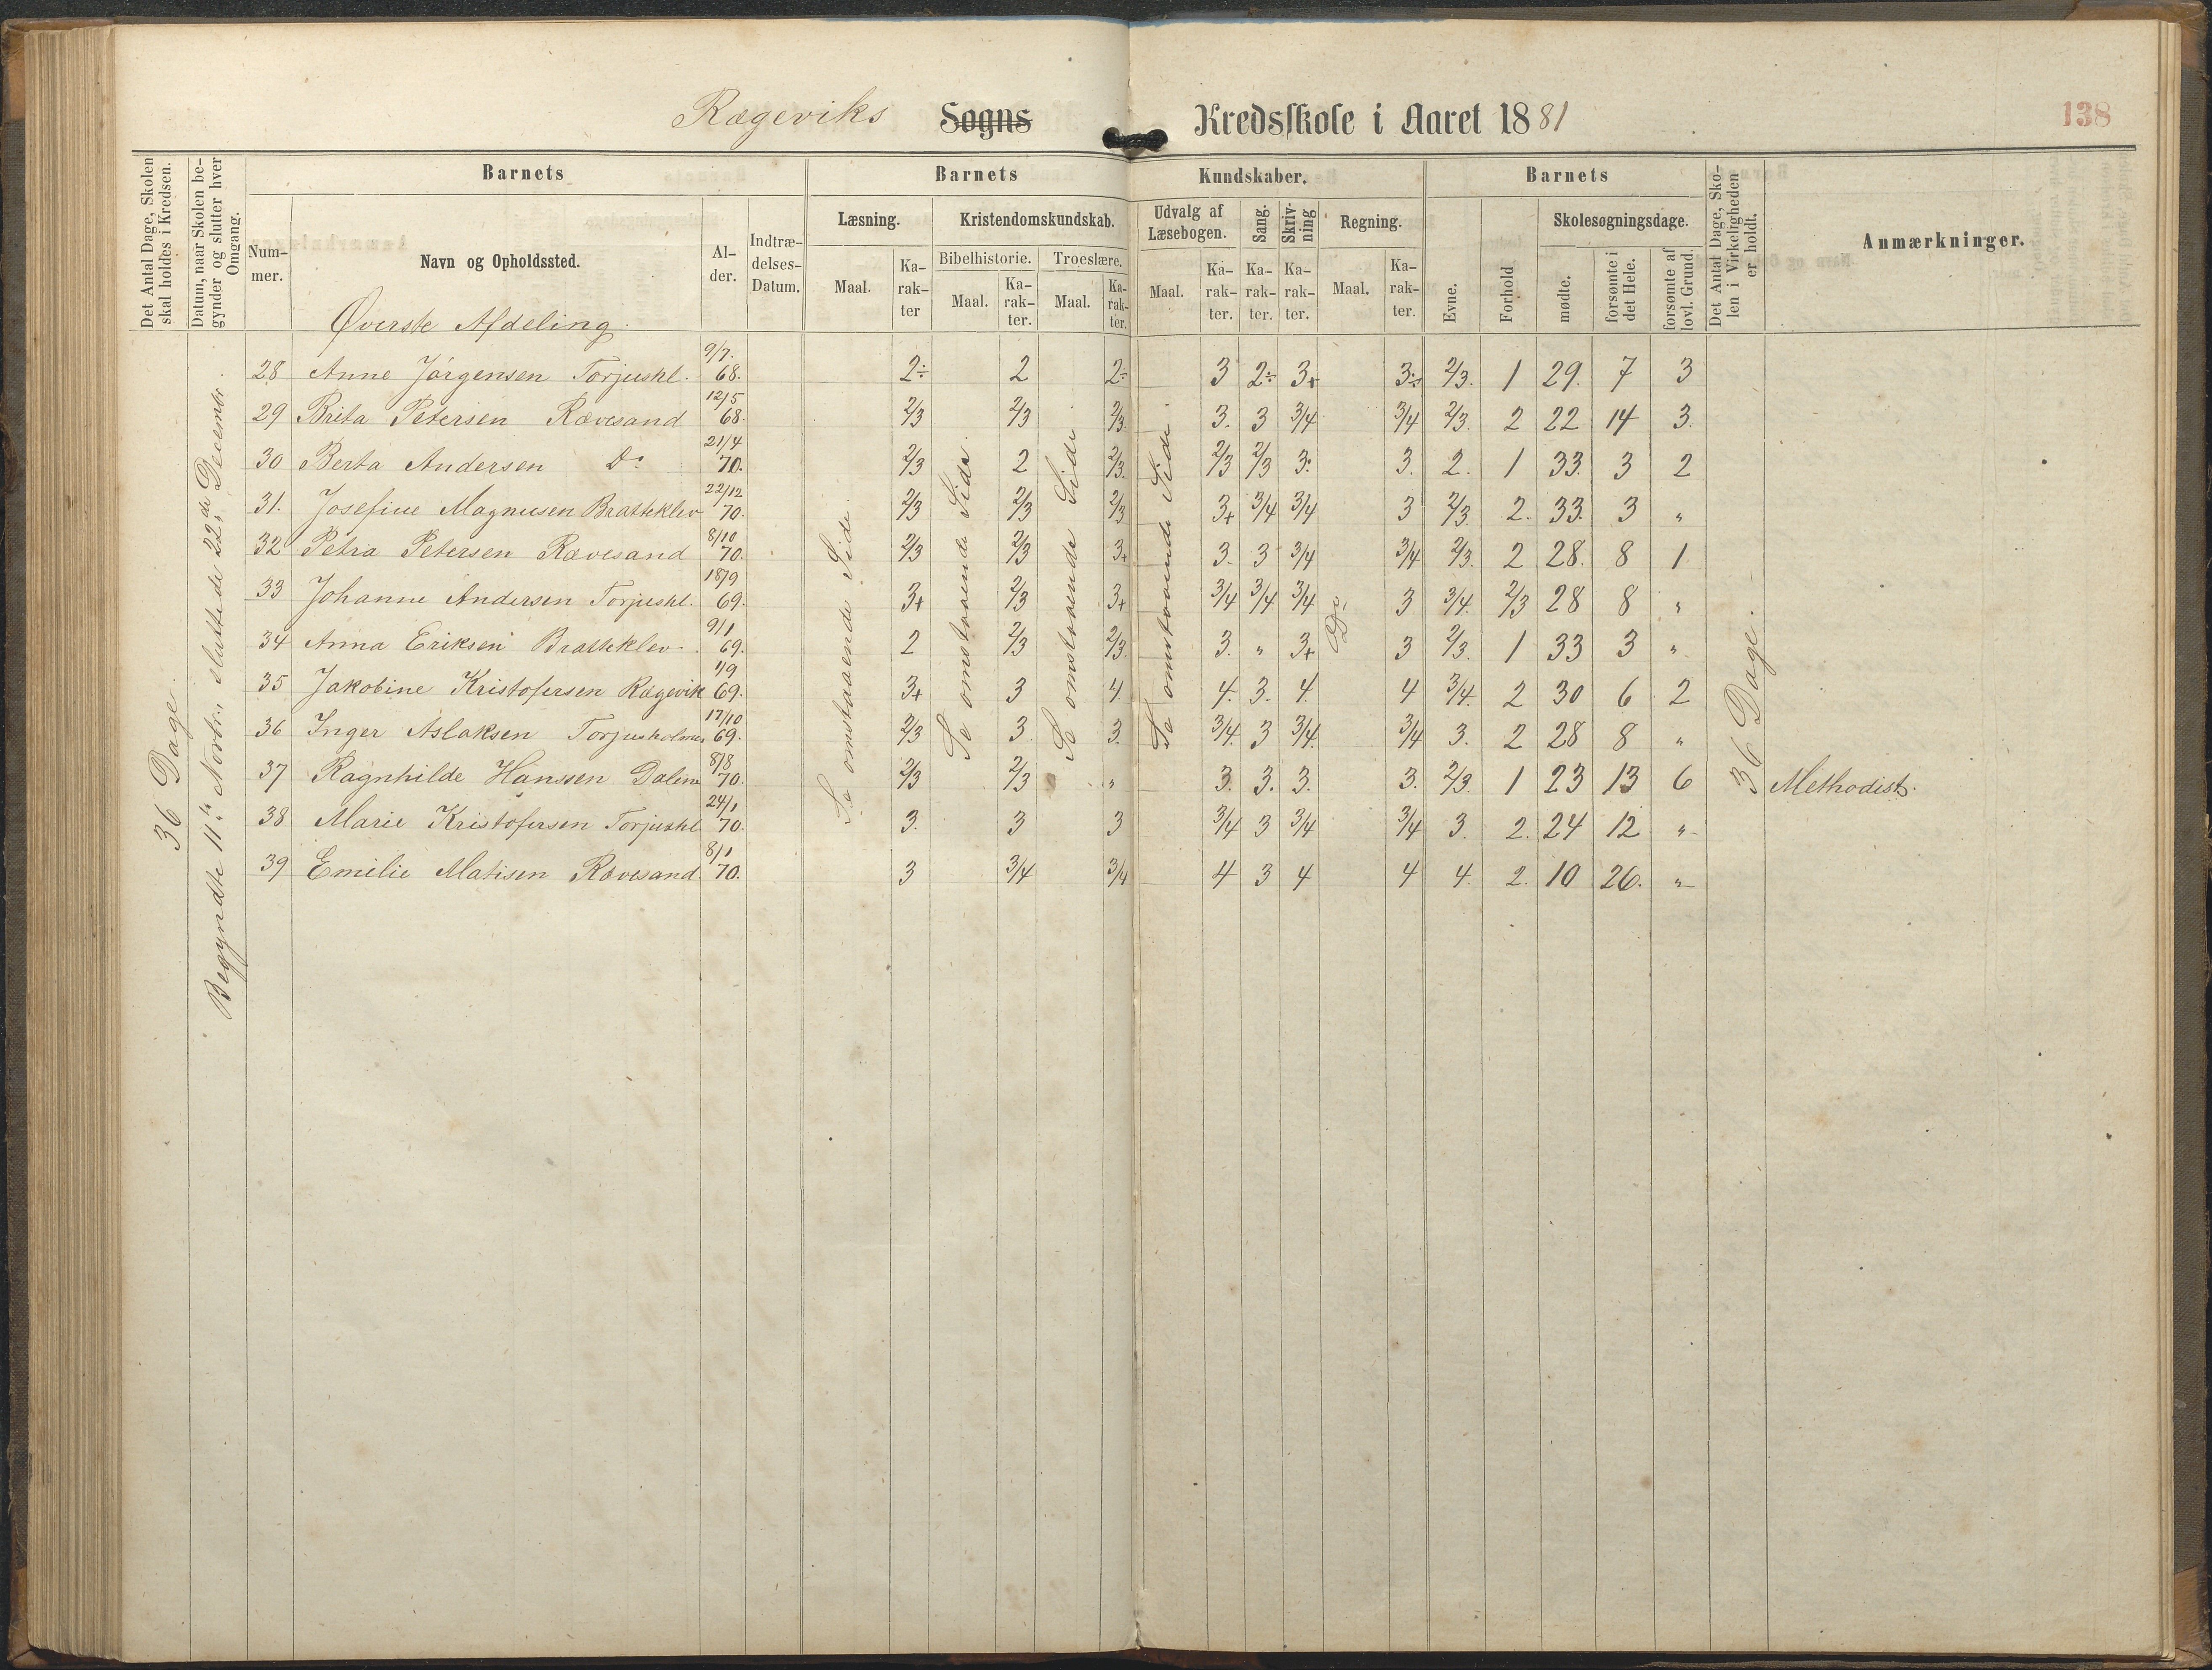 Rægeviks Sogns Kredsskole i Aaret 1881
138
Det Antal Dage, Skolen skal holdes i Kredsen.
Datum, naar Skolen begynder og slutter hver Omgang.
Barnets
Nummer.
Navn og Opholdssted.
Alder.
Indtrædelses-Datum.
Barnets Kundskaber.
Læsning.
Maal.
Karakter
Kristendomskundskab.
Bibelhistorie.
Maal.
Karakter.
Troeslære.
Maal.
Karakter.
Udvalg af Læsebogen.
Maal.
Karakter.
Sang.
Karakter.
Skrivning
Karakter.
Regning.
Maal.
Karakter.
Barnets
Evne.
Forhold
Skolesøgningsdage.
mødte.
forsømte i det Hele.
forsømte af lovl. Grund.
Det Antal Dage, Skolen i Virkeligheden er holdt.
Anmærkninger.
Øverste Afdeling.
36 Dage.
Begyndte 11te Novbr., sluttede 22de Decembr.
Se omstaaende Side.
Se omstaaende Side.
Se omstaaende Side.
Se omstaaende Side.
Do
36 Dage.
28 Anne Jørgensen Torjushl. 9/7. 68. 2÷ 2 2÷ 3 2÷ 3+ 3÷ 2/3. 1 29. 7 3
29 Brita Petersen Rævesand 12/5 68. 2/3 2/3 2/3. 3. 3 3/4 3/4 2/3. 2 22 14 3.
30 Berta Andersen Do 21/4 70. 2/3 2 2/3. 2/3 2/3 3. 3. 2. 1 33. 3 2
31. Josefine Magnusen Bratteklev 22/12 70. 2/3 2/3 2/3 3+ 3/4 3/4 3 2/3 2. 33. 3 "
32 Petra Petersen Rævesand 8/10 70. 2/3 2/3 3+ 3. 3 3/4 3/4 2/3. 2 28. 8 1
33 Johanne Andersen Torjushl. 18/9 69. 3+ 2/3 3+ 3/4 3/4 3/4 3 3/4. 2/3 28 8 "
34 Anna Eriksen Bratteklev. 9/1 69. 2 2/3 2/3. 3. " 3+ 3 2/3. 1 33 3 "
35 Jakobine Kristofersen Rægevik 1/9 69. 3+ 3 4. 4. 3. 4. 4 3/4. 2 30 6 2
36 Inger Aslaksen Torjusholmen 17/10 69. 2/3 3. 3. 3/4. 3 3/4. 3/4 3. 2 28 8 "
37 Ragnhilde Hanssen Dalen 8/8 70. 2/3 2/3 " 3. 3. 3. 3. 2/3. 1 23 13 6 Methodist.
38 Marie Kristofersen Torjushl 24/1 70. 3. 3 3 3/4 3 3/4 3/4 3. 2. 24 12 "
39 Emilie Matisen Rævesand. 8/1 70. 3 3/4 3/4 4 3 4 4 4. 2. 10 26. "